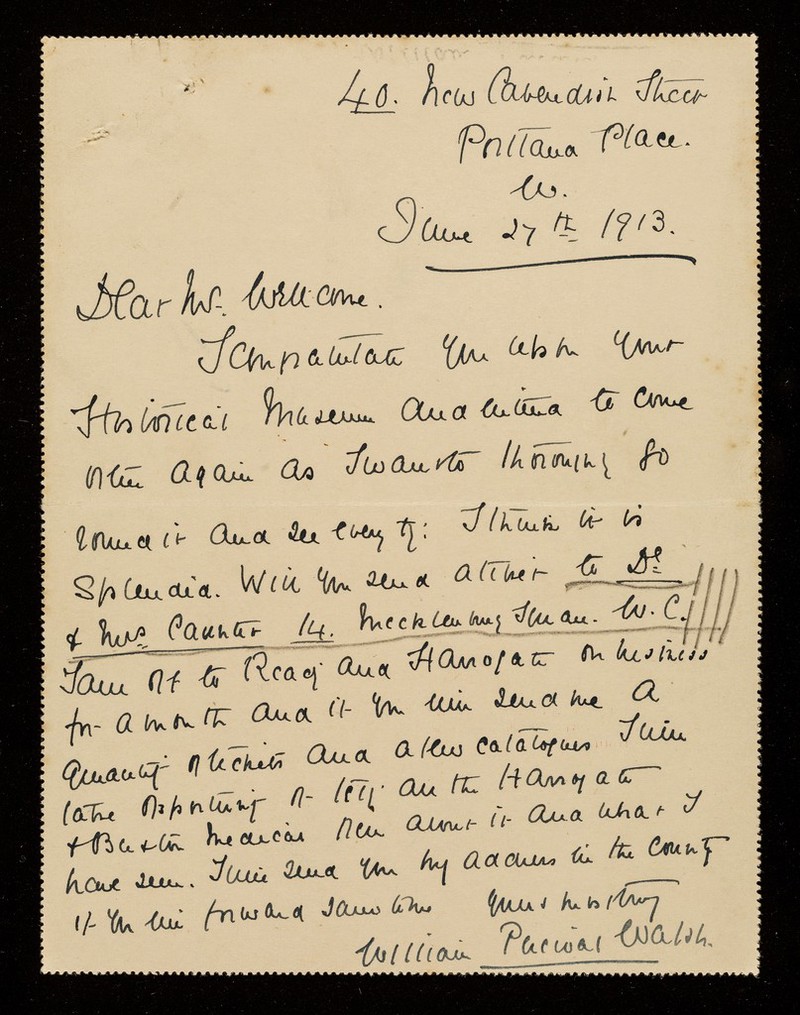 40. New Cavendish Street
Portland Place.
W.
June 27th 1913.
Dear Mr. Wellcome.
I congratulate you upon your
Historical Museum and intend to come
often again as I want to thoroughly go
round it and see everyth: I think it is
Splendid. Will you send a ticket to Dr
& Mrs Caunter 14. Mecklenburg Square. W.C.
I am off to and Harrogate on business
for a month and if you will send me a
quantity of tickets and a few catalogues I will
take opportunity of telling all the Harrogate
& Buxton Medical Men about it and what I
have seen. I will send you my address in the County
if you will forward same to me yours most truly
William Percival Walsh.